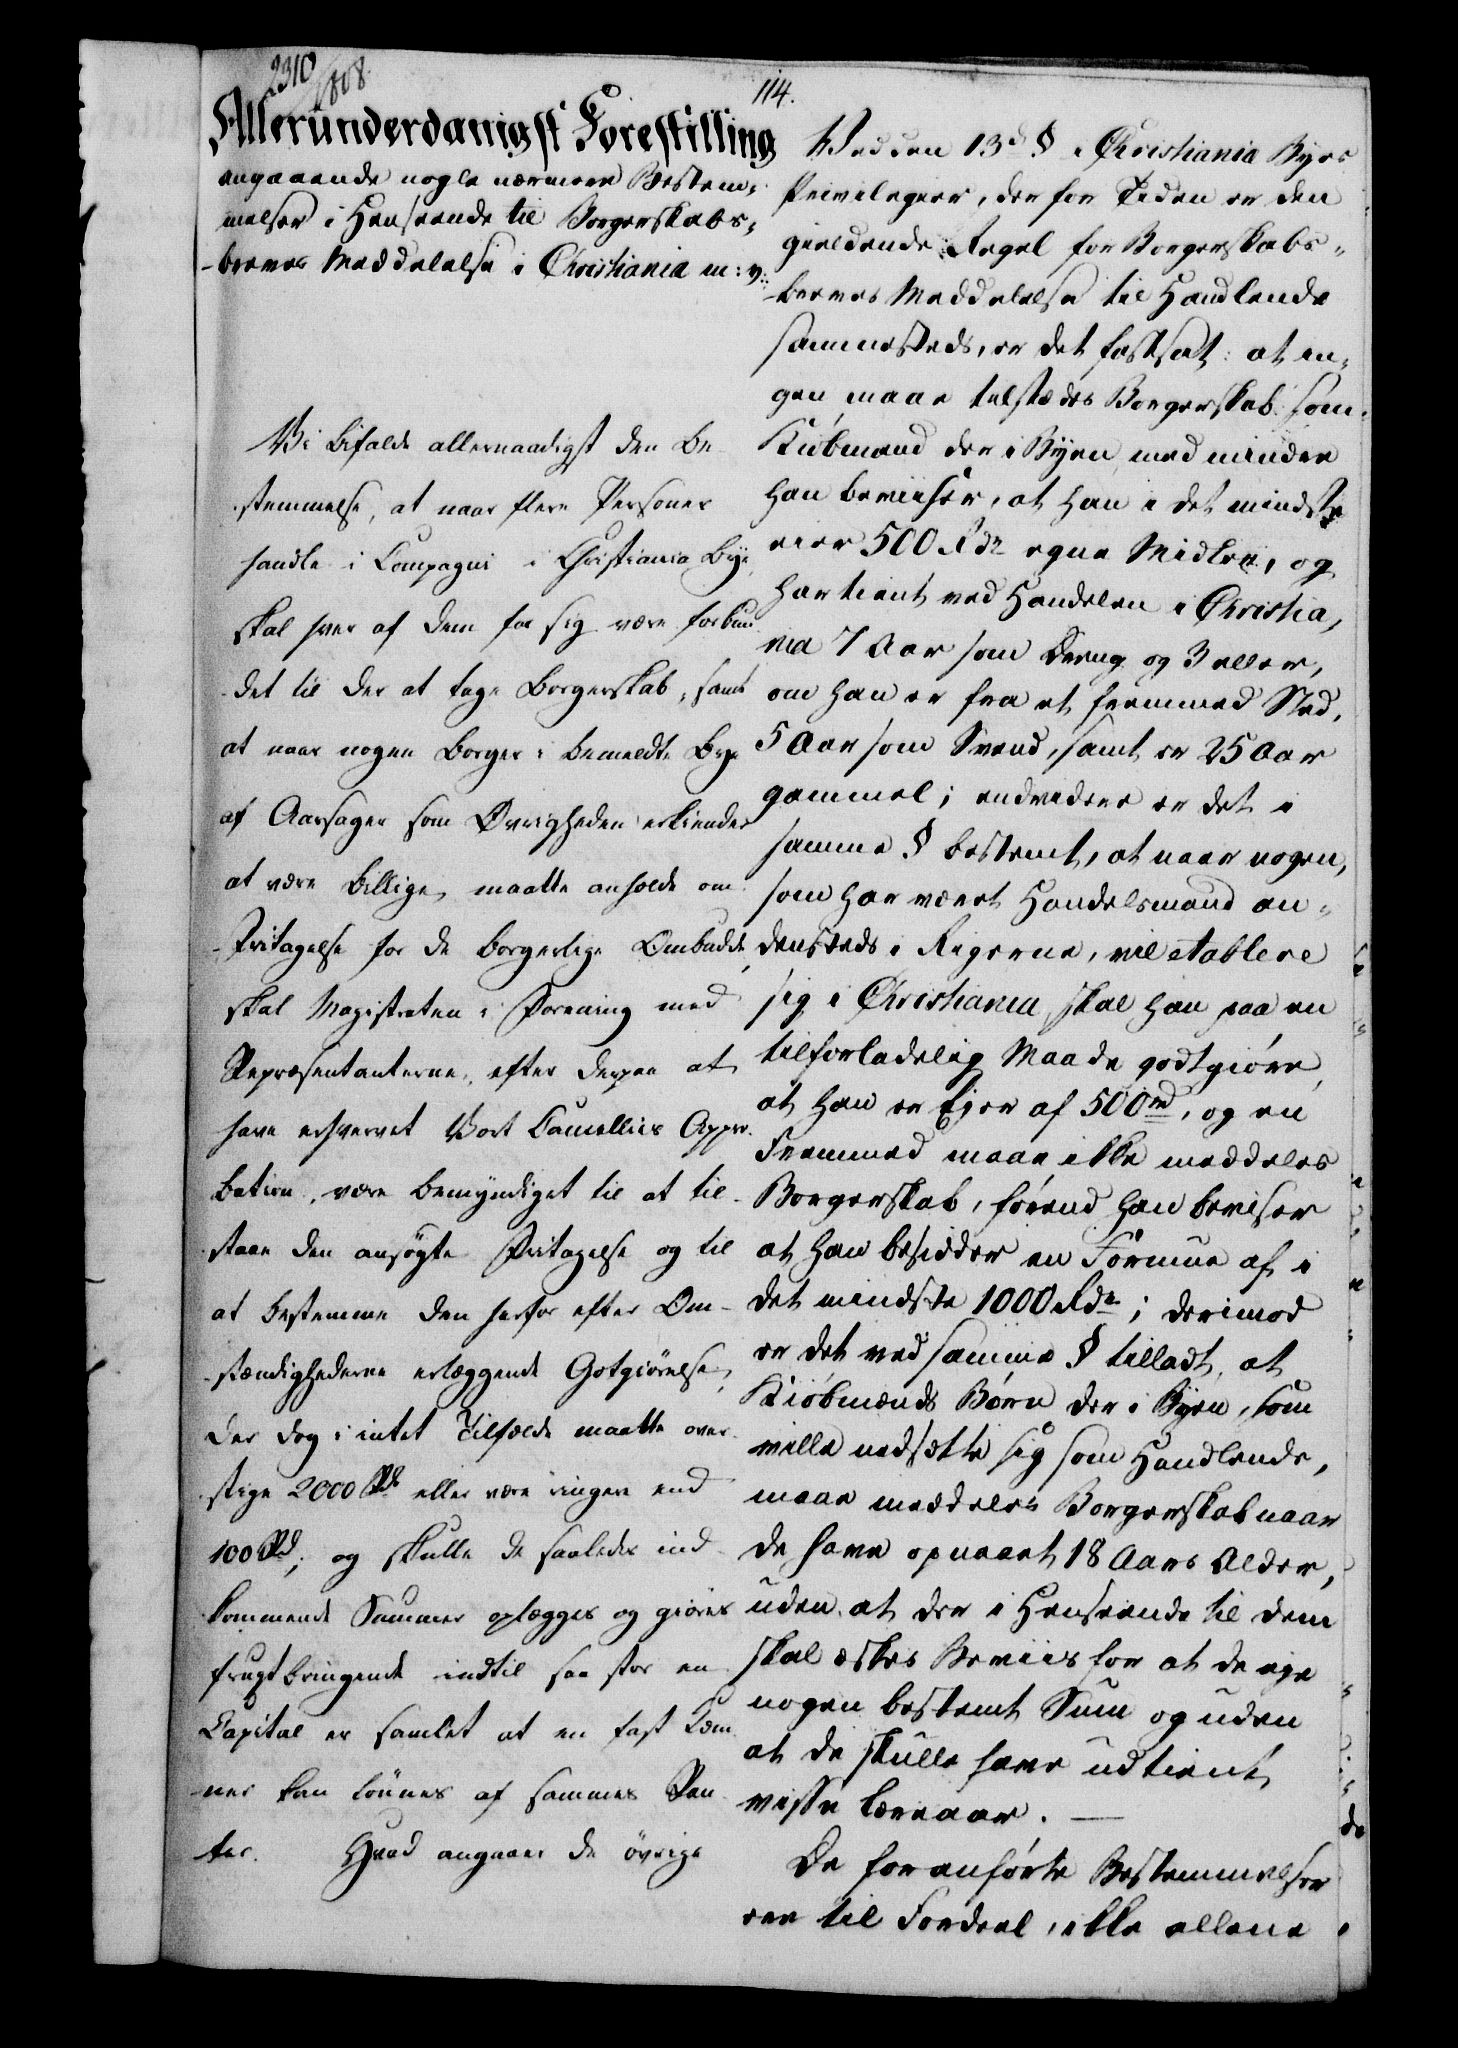 2310/1808.
114.
Allerunderdanigst Forestilling
angaaende nogle nærmere Bestem„
melser i Henseende til Borgerskabs„
breves Meddelelse i Christiania m: v:
Vi bifalde allernaadigst den Be
stemmelse, at naar flere Personer
handle i Compagni i Christiania Bye,
skal hver af dem for sig være forbun
det til der at tage Borgerskab, samt
at naar nogen Borger i bemeldte Bye
af Aarsager som Øvrigheden erkiender
at være billige, maatte anholde om
Fritagelse for de borgerlige Ombudde,
skal Magistraten i Forening med
Repræsentanterne, efter derpaa at
have erhvervet Vort Cancellies Appro
bation, være bemyndiget til at til
staae den ansøgte Fritagelse og til
at bestemme den herfor efter Om-
stændighederne erlæggende Gotgiörelse,
der dog i intet Tilfælde maatte over
stige 2000 Rd eller være ringere end
100 Rd; og skulle de saaledes ind
kommende Summer oplægges og giöres
frugtbringende indtil saa stor en
Capital er samlet at en fast Kæm
ner kan lönnes af sammes Ren
ter. Hvad angaaer de övrige
Ved den 13d § i Christiania Byes
Privilegier, der for Tiden er den
gieldende Regel for Borgerskabs„
breves Meddelelse til Handlende
sammesteds, er det fastsat: at in„
gen maae tilstædes Borgerskab som
Kiöbmand der i Byen med mindre
han beviiser, at han i det mindste
eier 500 Rdr egne Midler, og
har tient ved Handelen i Christia„
nia 7 Aar som Dreng og 3 eller,
om han er fra et fremmed Sted,
5 Aar som Svend, samt er 25 Aar
gammel; endvidere er det i
samme § bestemt, at naar nogen,
som har været Handelsmand an„
densteds i Rigerne, vil etablere
sig i Christiania, skal han paa en
tilforladelig Maade godtgiöre,
at han er Ejer af 500 rd, og en
Fremmed maae ikke meddeles
Borgerskab, förend han beviser
at han besidder en Formue af i
det mindste 1000 Rdr; derimod
er det ved samme § tilladt, at
Kiöbmænds Börn der i Byen, som
ville nedsætte sig som Handlende,
maae meddeles Borgerskab naar
de have opnaaet 18 Aars Alder,
uden at der i Henseende til dem
skal æskes Beviis for at de eje
nogen bestemt Sum og uden
at de skulle have udtient
visse læreaar. —
De foranförte Bestemmelser
ere til Fordeel, ikke allene